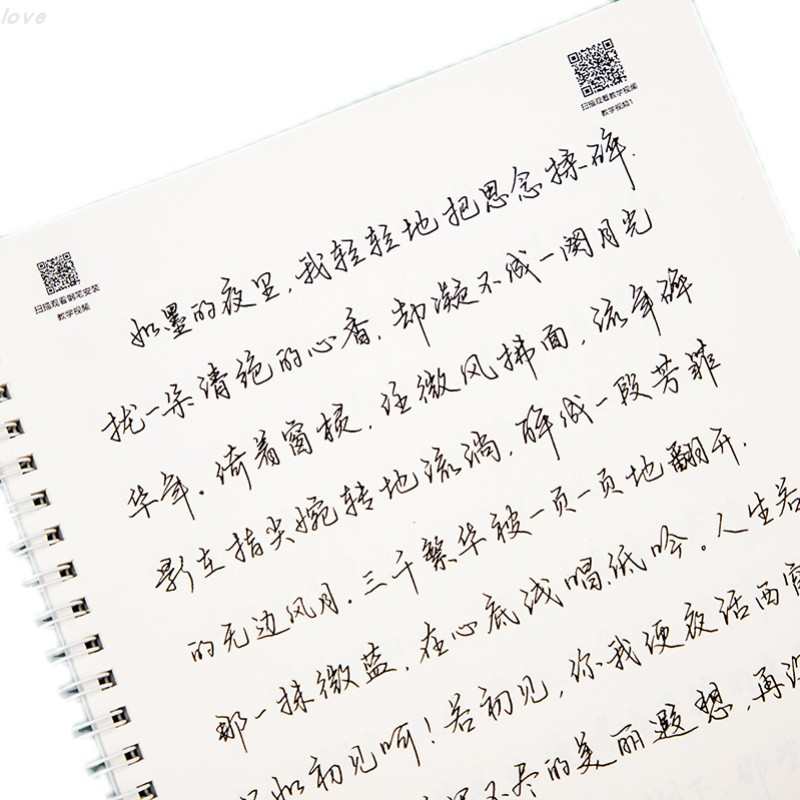 love
扫描观看教学视频
教学视频1
扫描观看钢笔安装
教学视频
如墨的夜里，我轻轻地把思念揉碎，
拢一朵清绝的心香，却凝不成一阕月光
华年。倚着窗棂，任微风拂面，流年碎
影在指尖婉转地流淌，碎成一段芳菲
的无边风月。三千繁华被一页一页地翻开，
那一抹微蓝，在心底浅唱低吟。人生若
如初见呵！若初见，你我便夜话西窗
不尽的美丽遐想，再没